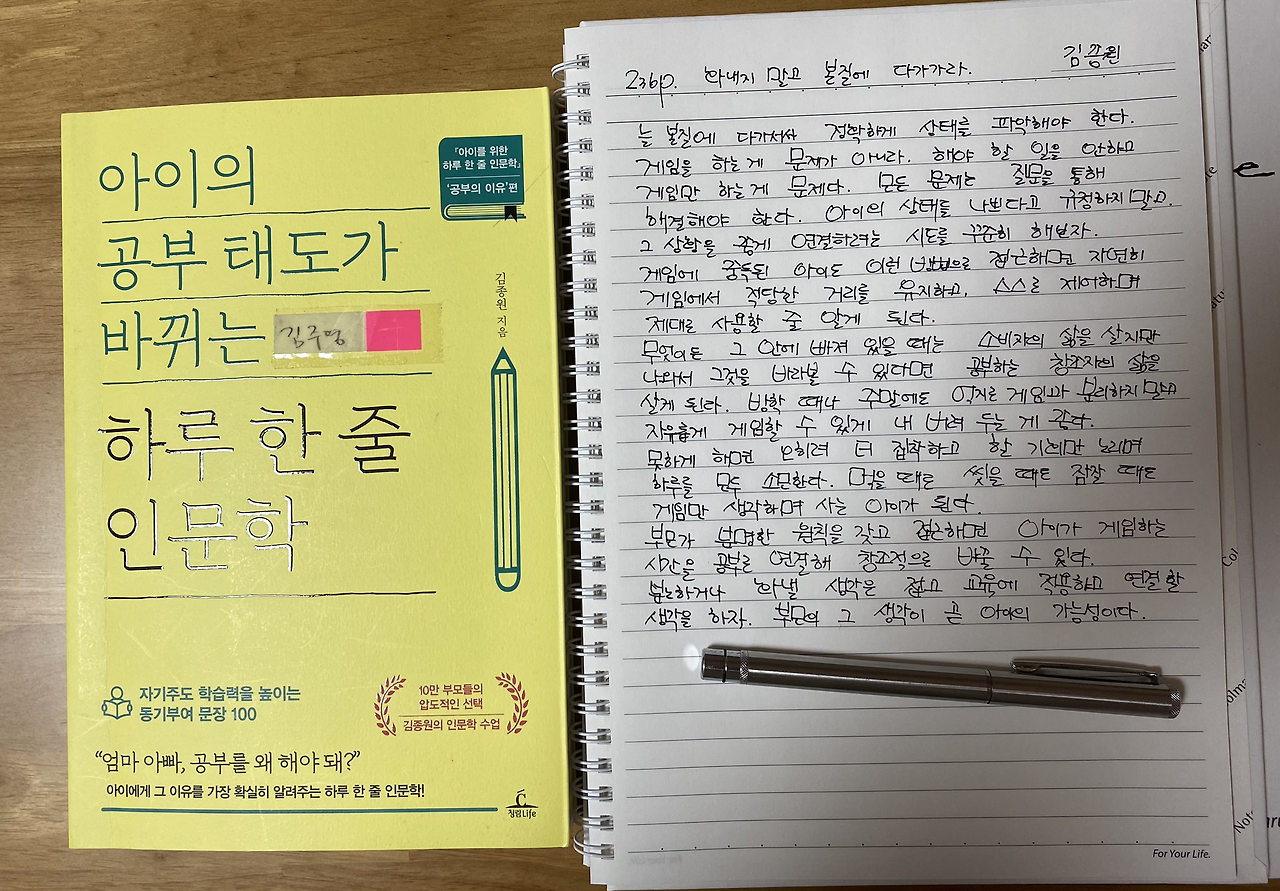 아이의
공부 태도가
바뀌는
김주영
하루 한 줄
인문학
『아이를 위한
하루 한 줄 인문학』
'공부의 이유'편
김종원 지음
자기주도 학습력을 높이는
동기부여 문장 100
10만 부모들의
압도적인 선택
김종원의 인문학 수업
"엄마 아빠, 공부를 왜 해야 돼?"
아이에게 그 이유를 가장 확실히 알려주는 하루 한 줄 인문학!
청림Life
김종원
236p. 화내지 말고 본질에 다가가라.
늘 본질에 다가서서 정확하게 상태를 파악해야 한다.
게임을 하는 게 문제가 아니라. 해야 할 일을 안하고
게임만 하는 게 문제다. 모든 문제는 질문을 통해
해결해야 한다. 아이의 상태를 나쁘다고 규정하지 말고.
그 상황을 좋게 연결하려는 시도를 꾸준히 해보자.
게임에 중독된 아이도 이런 방법으로 접근하면 자연히
게임에서 적당한 거리를 유지하고, 스스로 제어하며
제대로 사용할 줄 알게 된다.
무엇이든 그 안에 빠져 있을 때는 소비자의 삶을 살지만
나와서 그것을 바라볼 수 있다면 공부하는 창조자의 삶을
살게 된다. 방학 때나 주말에도 억지로 게임과 분리하지 말고
자유롭게 게임할 수 있게 내 버려 두는 게 같다.
못하게 하면 오히려 더 집착하고 할 기회만 노리며
하루를 모두 소모한다. 먹을 때도 씻을 때도 잠잘 때도
게임만 생각하며 사는 아이가 된다.
부모가 분명한 원칙을 갖고 접근하면 아이가 게임하는
시간을 공부로 연결해 창조적으로 바꿀 수 있다.
분노하거나 화낼 생각은 접고 교육에 적용하고 연결할
생각을 하자. 부모의 그 생각이 곧 아이의 가능성이다.
For Your Life.